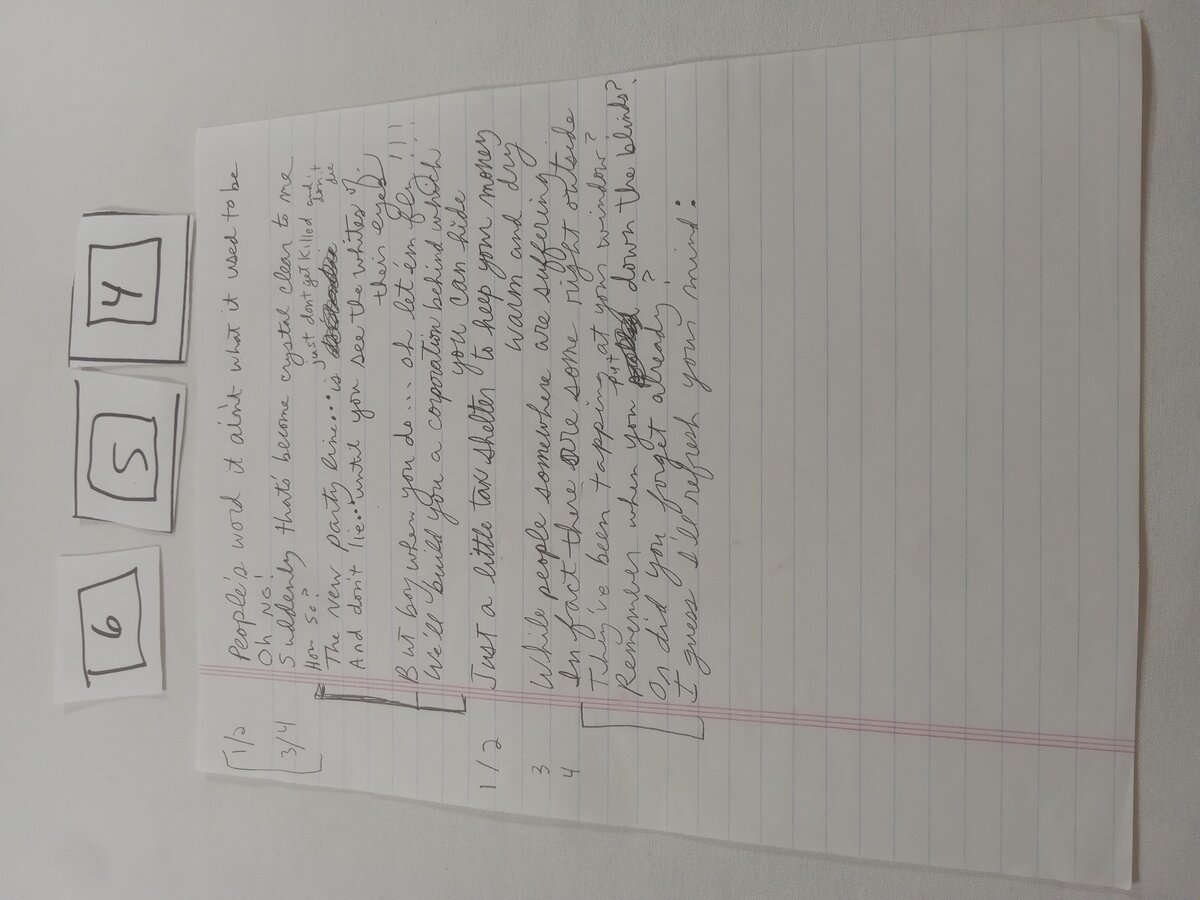 6
5
4
1/2
People's word it ain't what it used to be
Oh NO!
3/4
Suddenly that's become crystal clear to me
How so?
just don't get killed and don't die
The new party line... is
And don't lie... until you see the whites of
their eyes
But boy when you do... oh let 'em fly!!!
We'll build you a corporation behind which
you can hide
1/2
Just a little tax shelter to keep your money
warm and dry
3
While people somewhere are suffering
4
In fact there are some right outside
They've been tapping at your window?
put
Remember when you down the blinds?
Or did you forget already?
I guess I'll refresh your mind: